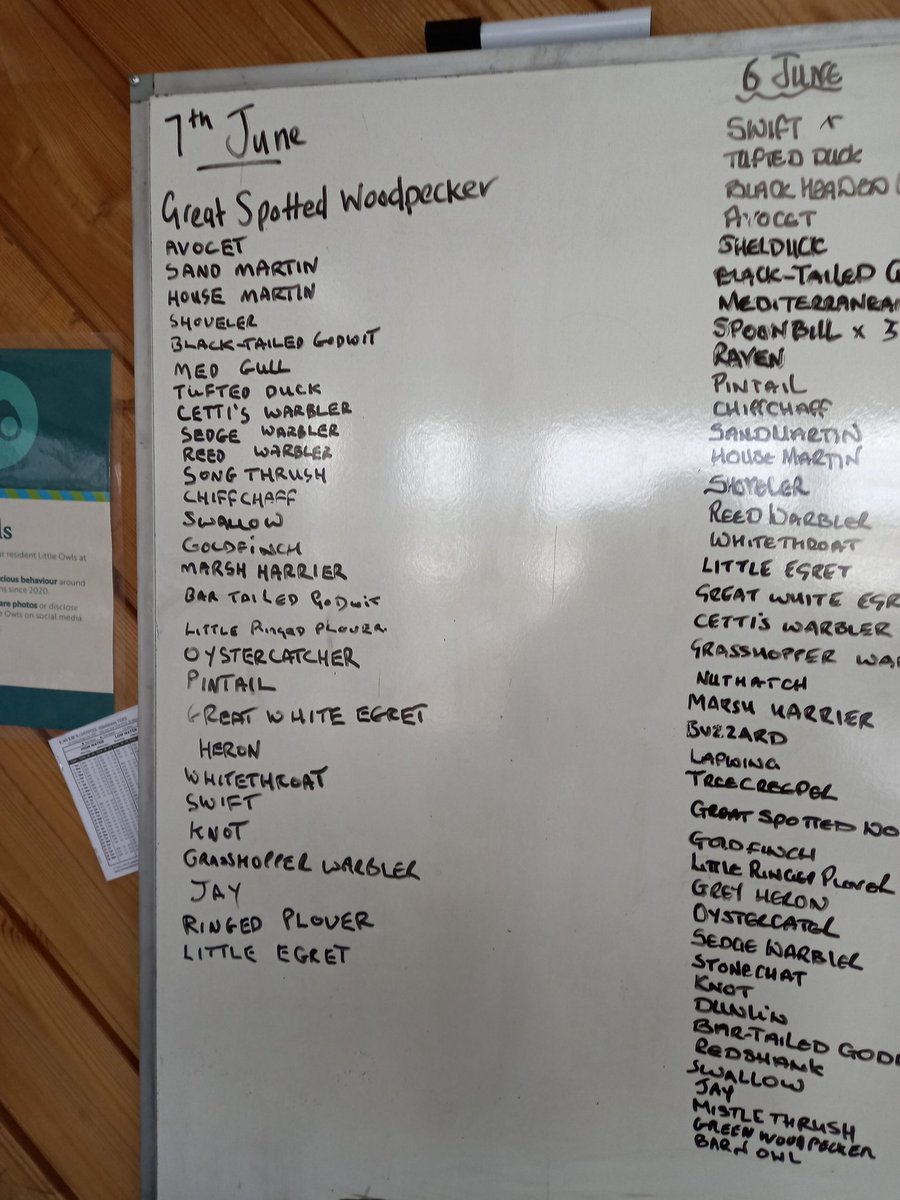 7th June
Great Spotted Woodpecker
AVOCET
SAND MARTIN
HOUSE MARTIN
SHOVELER
BLACK-TAILED GODWIT
MED GULL
TUFTED DUCK
CETTI'S WARBLER
SEDGE WARBLER
REED WARBLER
SONG THRUSH
CHIFFCHAFF
SWALLOW
GOLDFINCH
MARSH HARRIER
BAR TAILED GODWIT
LITTLE RINGED PLOVER
OYSTERCATCHER
PINTAIL
GREAT WHITE EGRET
HERON
WHITETHROAT
SWIFT
KNOT
GRASSHOPPER WARBLER
JAY
RINGED PLOVER
LITTLE EGRET
6 JUNE
SWIFT
TUFTED DUCK
BLACK HEADED
AVOCET
SHELDUCK
BLACK-TAILED G
MEDITERRANEA
SPOONBILL x 3
RAVEN
PINTAIL
CHIFFCHAFF
SANDMARTIN
HOUSE MARTIN
SHOVELER
REED WARBLER
WHITETHROAT
LITTLE EGRET
GREAT WHITE EGR
CETTI'S WARBLER
GRASSHOPPER WAR
NUTHATCH
MARSH HARRIER
BUZZARD
LAPWING
TREECREEPER
GREAT SPOTTED WO
GOLDFINCH
LITTLE RINGED PLOVER
GREY HERON
OYSTERCATCH
SEDGE WARBLER
STONECHAT
KNOT
DUNLIN
BAR-TAILED GOD
REDSHANK
SWALLOW
JAY
MISTLE THRUSH
GREEN WOODPECKER
BARN OWL
ls
ur resident Little Owls at
cious behaviour around
ns since 2020.
are photos or disclose
e Owls on social media
HIGH WATER LOW WATER